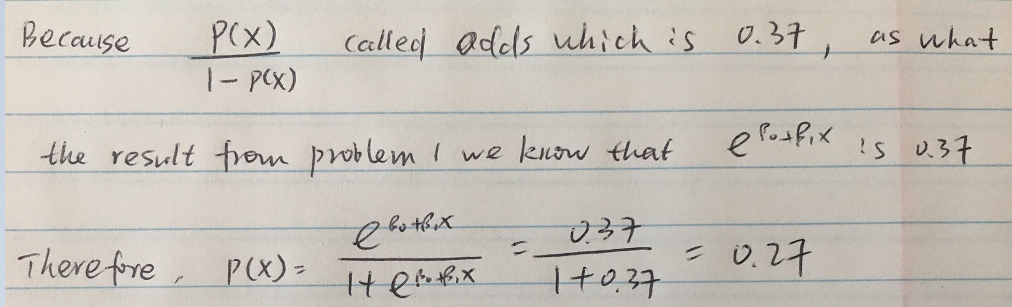 Because P(X) / 1 - P(X) called odds which is 0.37, as what
the result from problem 1 we know that e^{β₀+β₁X} is 0.37
Therefore, P(X) = e^{β₀+β₁X} / 1 + e^{β₀+β₁X} = 0.37 / 1 + 0.37 = 0.27